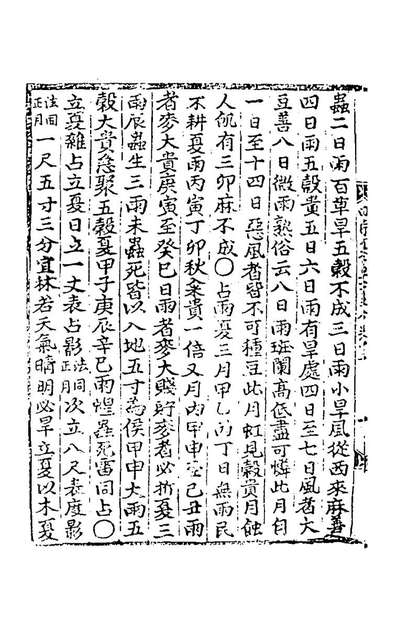 蟲二日雨百草旱五穀不成三日雨小旱風從西來麻善
四日雨五穀貴五日六日雨有旱處四日至七日風者大
豆善八日微雨熟俗云八日雨班闌高低盡可憐此月自
一日至十四日惡風者皆不可種豆此月虹見穀貴月蝕
人飢有三卯麻不成○占雨夏三月甲乙丙丁日無雨民
不耕夏雨丙寅丁卯秋粟貴一倍又月內甲申至己丑雨
者麥大貴庚寅至癸巳日雨者麥大賤好麥者必折夏三
雨辰蟲生三雨未蟲死皆以入地五寸為侯甲申大雨五
穀大貴急聚五穀夏甲子庚辰辛巳雨蝗蟲死雷同占○
立夏雜占立夏日立一丈表占影法同正月次立八尺表度影
法同正月一尺五寸三分宜林若天氣晴明必旱立夏以木夏